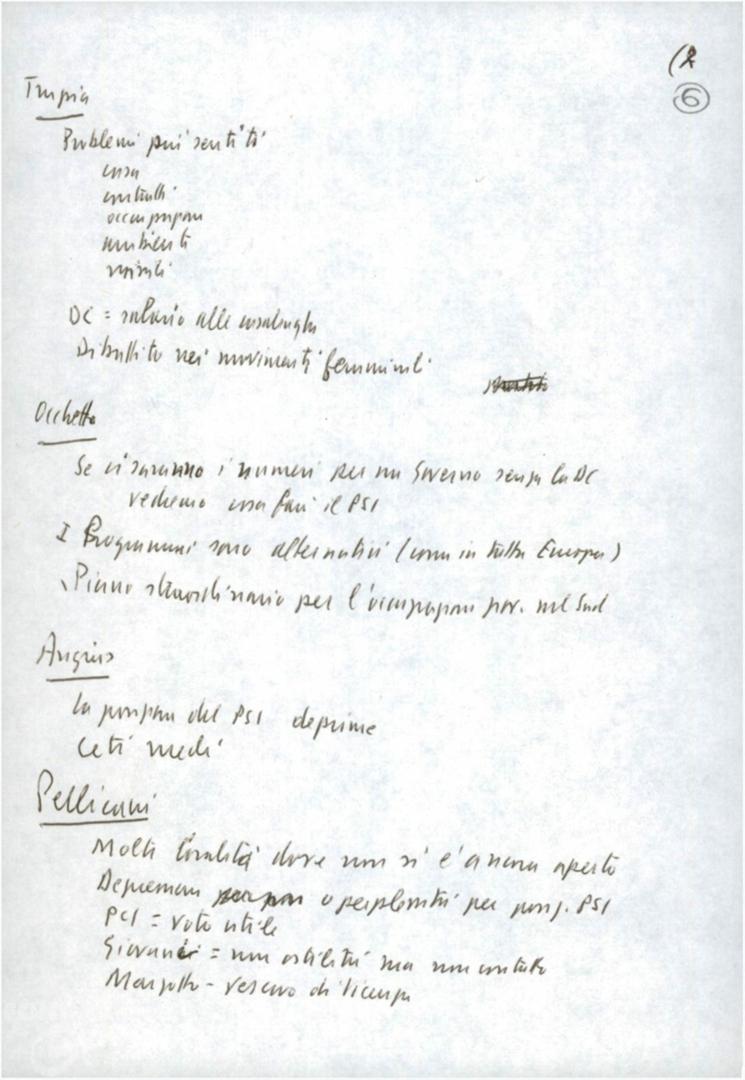 (2
6
Trupia
Problemi più sentiti
casa
contratti
occupazione
ambienti
DC = salario alle casalinghe
Dibattito nei movimenti femminili
Occhetto
Se vi saranno i numeri per un Governo senza la DC
vedremo cosa farà il PSI
I Programmi sono alternativi (come in tutta Europa)
Piano straordinario per l'occupazione giov. nel Sud
Angius
La posizione del PSI deprime
Ceti medi
Pellicani
Molte località dove non si è ancora aperto
Depressione o perplessità per posiz. PSI
PCI = voto utile
Giovani = non ostilità ma non contatto
Marzotto - vescovo di Vicenza